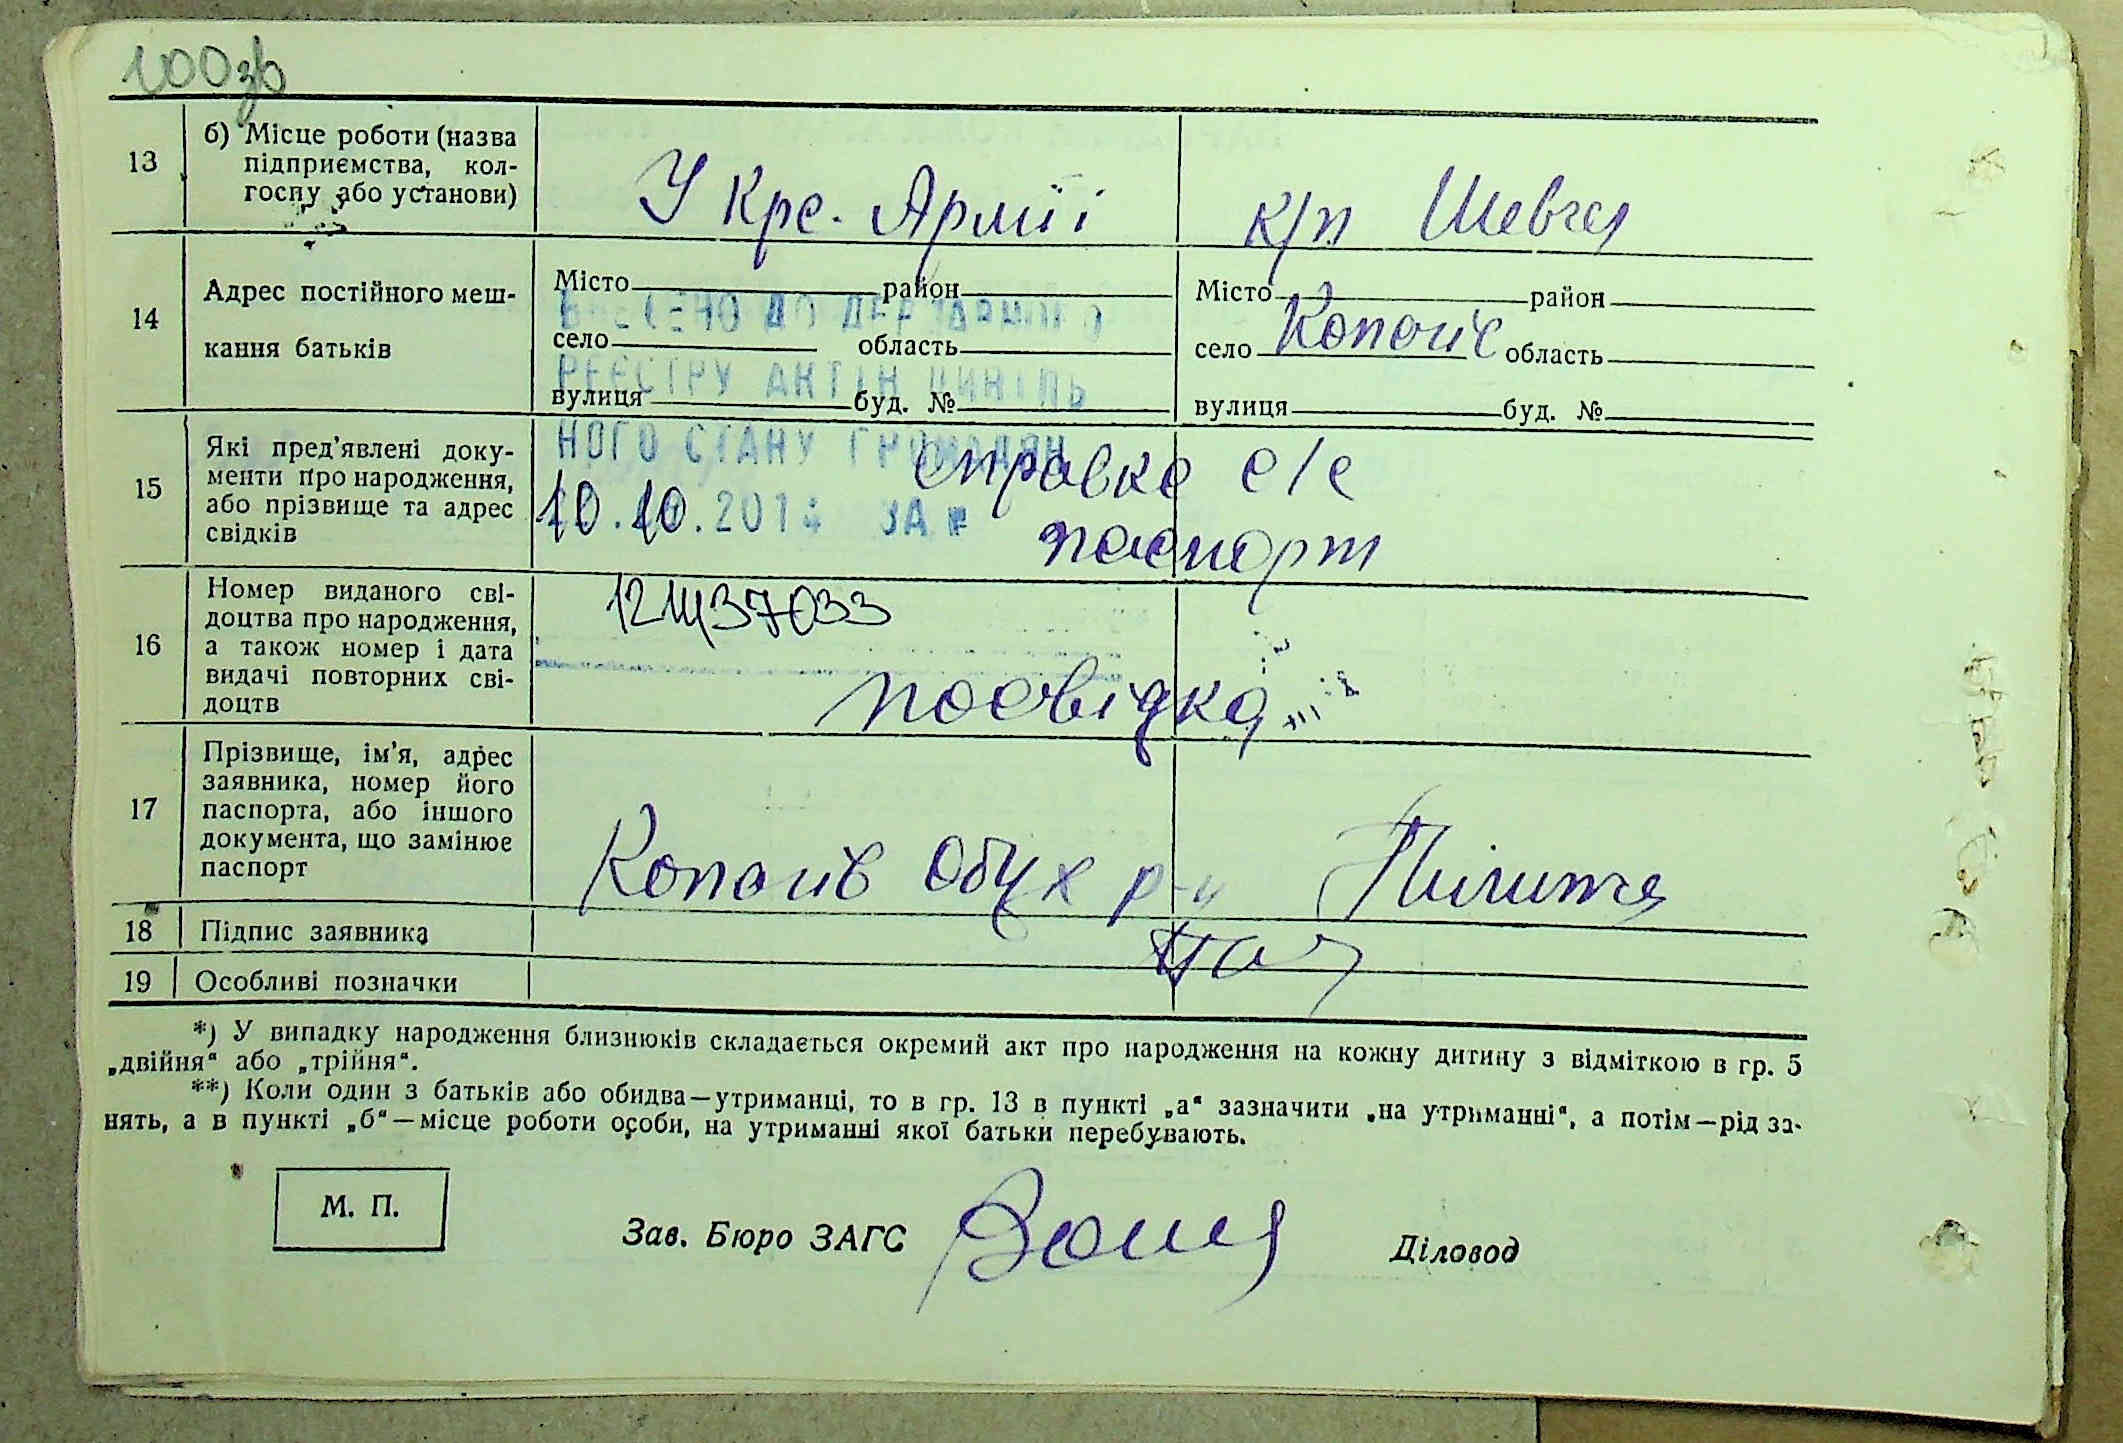 100зв
13
б) Місце роботи (назва
підприємства, кол-
госпу або установи)
У Крс. Армії
к/п Шевч
14
Адрес постійного меш-
кання батьків
Місто район
село область
вулиця буд. №
Місто район
село Копачів область
вулиця буд. №
ВНЕСЕНО ДО ДЕРЖАВНОГО
РЕЄСТРУ АКТІВ ЦИВІЛЬ
НОГО СТАНУ ГРОМАДЯН
10.10.201 ЗА №
15
Які пред'явлені доку-
менти про народження,
або прізвище та адрес
свідків
справка с/с
паспорт
16
Номер виданого сві-
доцтва про народження,
а також номер і дата
видачі повторних сві-
доцтв
12437033
посвідка
17
Прізвище, ім'я, адрес
заявника, номер його
паспорта, або іншого
документа, що замінює
паспорт
Копачів Обух р-н
18
Підпис заявника
19
Особливі позначки
*) У випадку народження близнюків складається окремий акт про народження на кожну дитину з відміткою в гр. 5
„двійня“ або „трійня“.
**) Коли один з батьків або обидва—утриманці, то в гр. 13 в пункті „а“ зазначити „на утриманні“, а потім—рід за-
нять, а в пункті „б“—місце роботи особи, на утриманні якої батьки перебувають.
М. П.
Зав. Бюро ЗАГС
Діловод